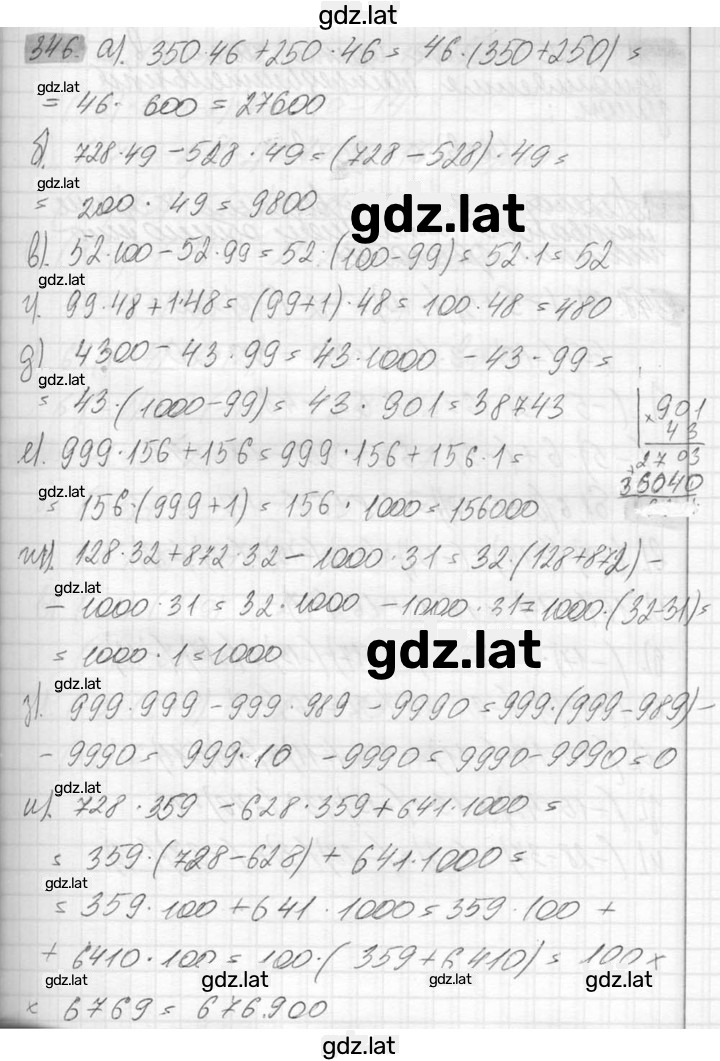 gdz.lat
346. а). 350·46+250·46= 46·(350+250)=
gdz.lat
= 46· 600 = 27600
б). 728·49-528·49=(728-528)·49=
gdz.lat
= 200 · 49 = 9800
gdz.lat
в). 52·100-52·99=52·(100-99)=52·1=52
gdz.lat
г). 99·48+1·48=(99+1)·48=100·48=480
д) 4300-43·99=43·1000 -43·99=
gdz.lat
= 43·(1000-99)= 43·901=38743
×901
43
е). 999·156+156=999·156+156·1=
+2703
36040
gdz.lat
= 156·(999+1)=156·1000=156000
ж). 128·32+872·32-1000·31=32·(128+872)-
gdz.lat
-1000·31=32·1000 -1000·31=1000·(32-31)=
gdz.lat
= 1000·1=1000
gdz.lat
з). 999·999-999·989-9990=999·(999-989)-
-9990= 999·10 -9990=9990-9990=0
gdz.lat
и). 728·359 -628·359+641·1000=
= 359·(728-628)+641·1000=
gdz.lat
= 359·100+641·1000=359·100+
+ 6410·100=100·(359+6410)=100×
gdz.lat gdz.lat gdz.lat gdz.lat
× 6769= 676.900
gdz.lat